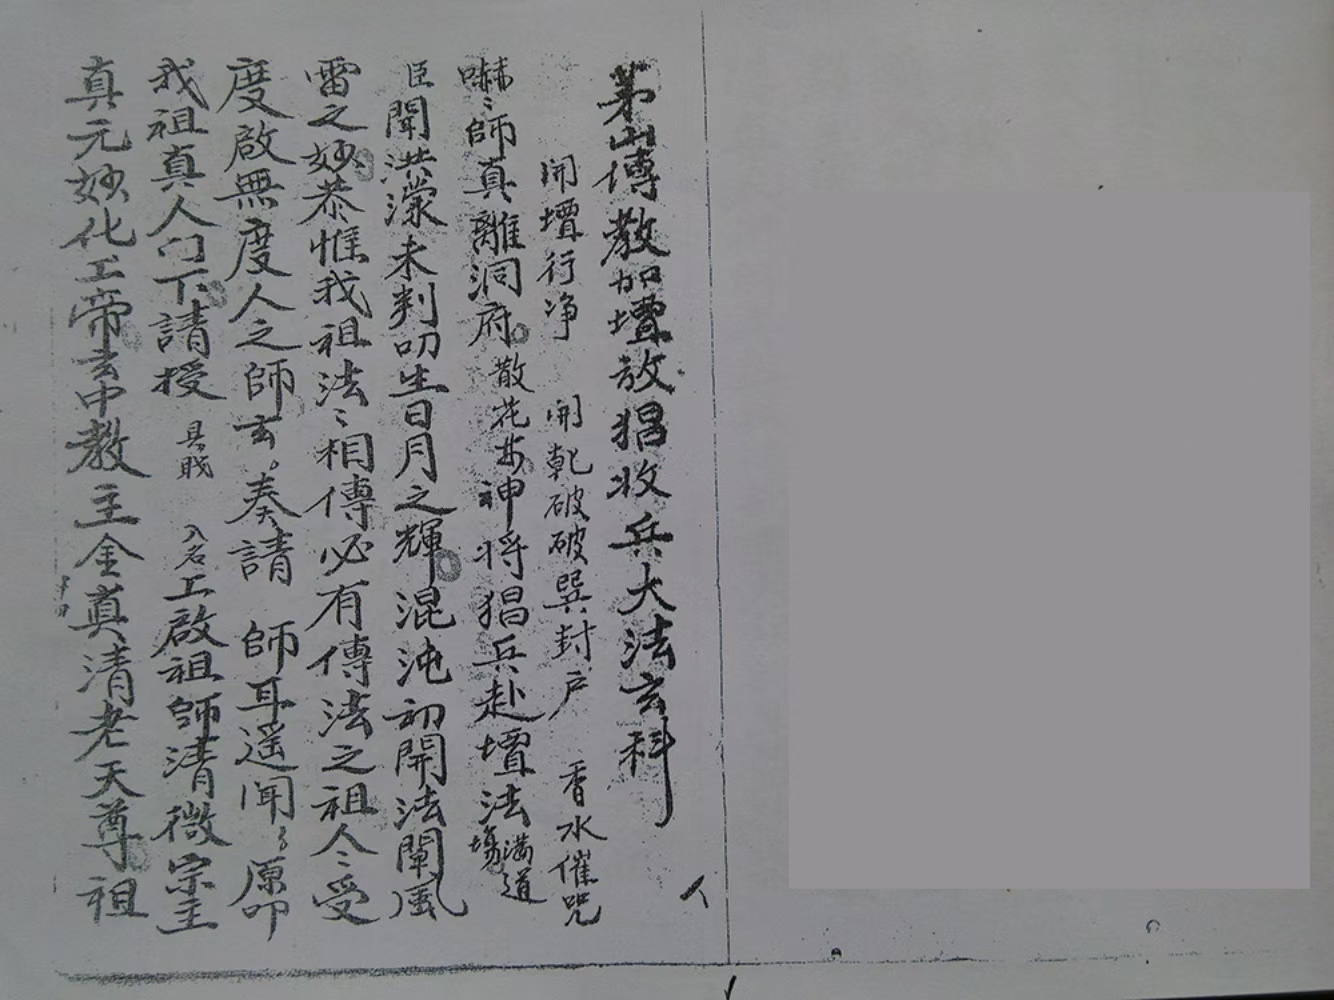 茅山傳教加壇放猖收兵大法玄科
開壇行净 開乾破破巽封户 香水催咒
嚇〻師真離洞府 散花步 神将猖兵赴壇法 滿道塲
臣聞洪濛未判叨生日月之輝混沌初開法闡風
雷之妙恭惟我祖法〻相傳必有傳法之祖人〻受
度啟無度人之師玄奏請 師耳遥聞〻原叩
我祖真人门下請授 具戝 入名 上啟祖師清微宗主
真元妙化上帝玄中教主金真清老天尊祖